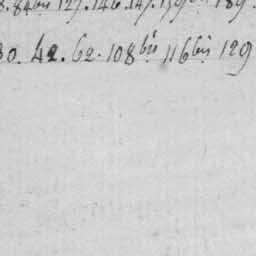 84bis 127. 146. 147. 159bis 189
30. 42. 62. 108bis 116bis 129